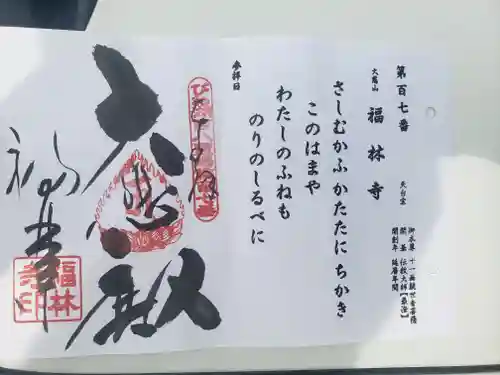 第百七番
大慈山
福林寺
天台宗
御本尊 十一面観世音菩薩
開基 伝教大師【最澄】
開創年 延暦年間
さしむかふかたたにちかき
このはまや
わたしのふねも
のりのしるべに
参拝日
大悲殿
福林寺
福林
寺印